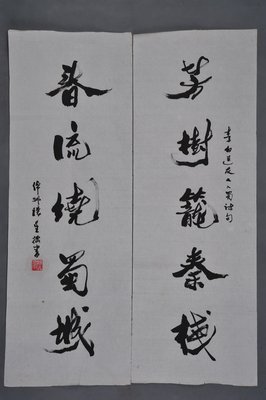 芳樹籠秦棧
李白送友人入蜀詩句
春流繞蜀城